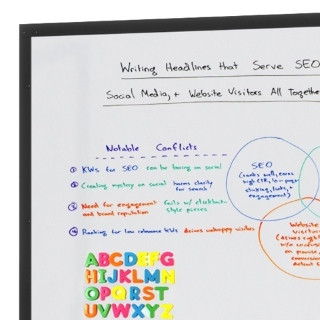 Writing Headlines that Serve SEO
Social Media, + Website Visitors All Together
Notable Conflicts
① KWs for SEO can be boring on social
② Creating mystery on social harms clarity
for search
③ Need for engagement fails w/ clickbait-
and brand reputation style pieces
④ Ranking for low relevance KWs drives unhappy visitors
SEO
(ranks well, earns
high CTR,
Website
Visitors
ABCDEFG
HIJKLMN
OPQRST
UVWXYZ